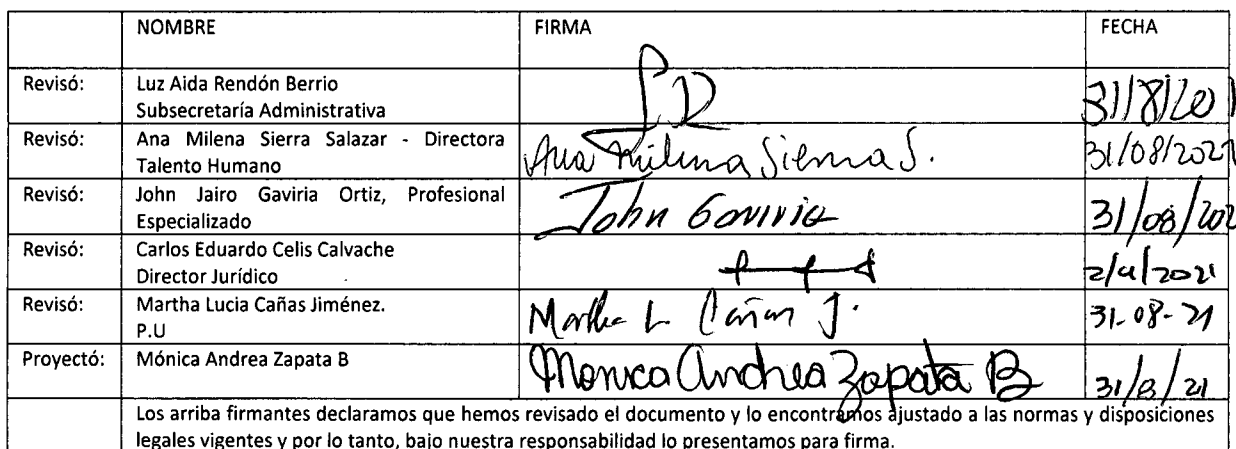 NOMBRE FIRMA FECHA
Revisó: Luz Aida Rendón Berrio
Subsecretaría Administrativa 31/8/20
Revisó: Ana Milena Sierra Salazar - Directora
Talento Humano Ana Milena Sierra S. 31/08/2021
Revisó: John Jairo Gaviria Ortiz, Profesional
Especializado John Gaviria 31/08/202
Revisó: Carlos Eduardo Celis Calvache
Director Jurídico
Revisó: Martha Lucia Cañas Jiménez.
P.U Martha L. Cañas J. 31-08-21
Proyectó: Mónica Andrea Zapata B Monica Andrea Zapata B 31/8/21
Los arriba firmantes declaramos que hemos revisado el documento y lo encontramos ajustado a las normas y disposiciones
legales vigentes y por lo tanto, bajo nuestra responsabilidad lo presentamos para firma.